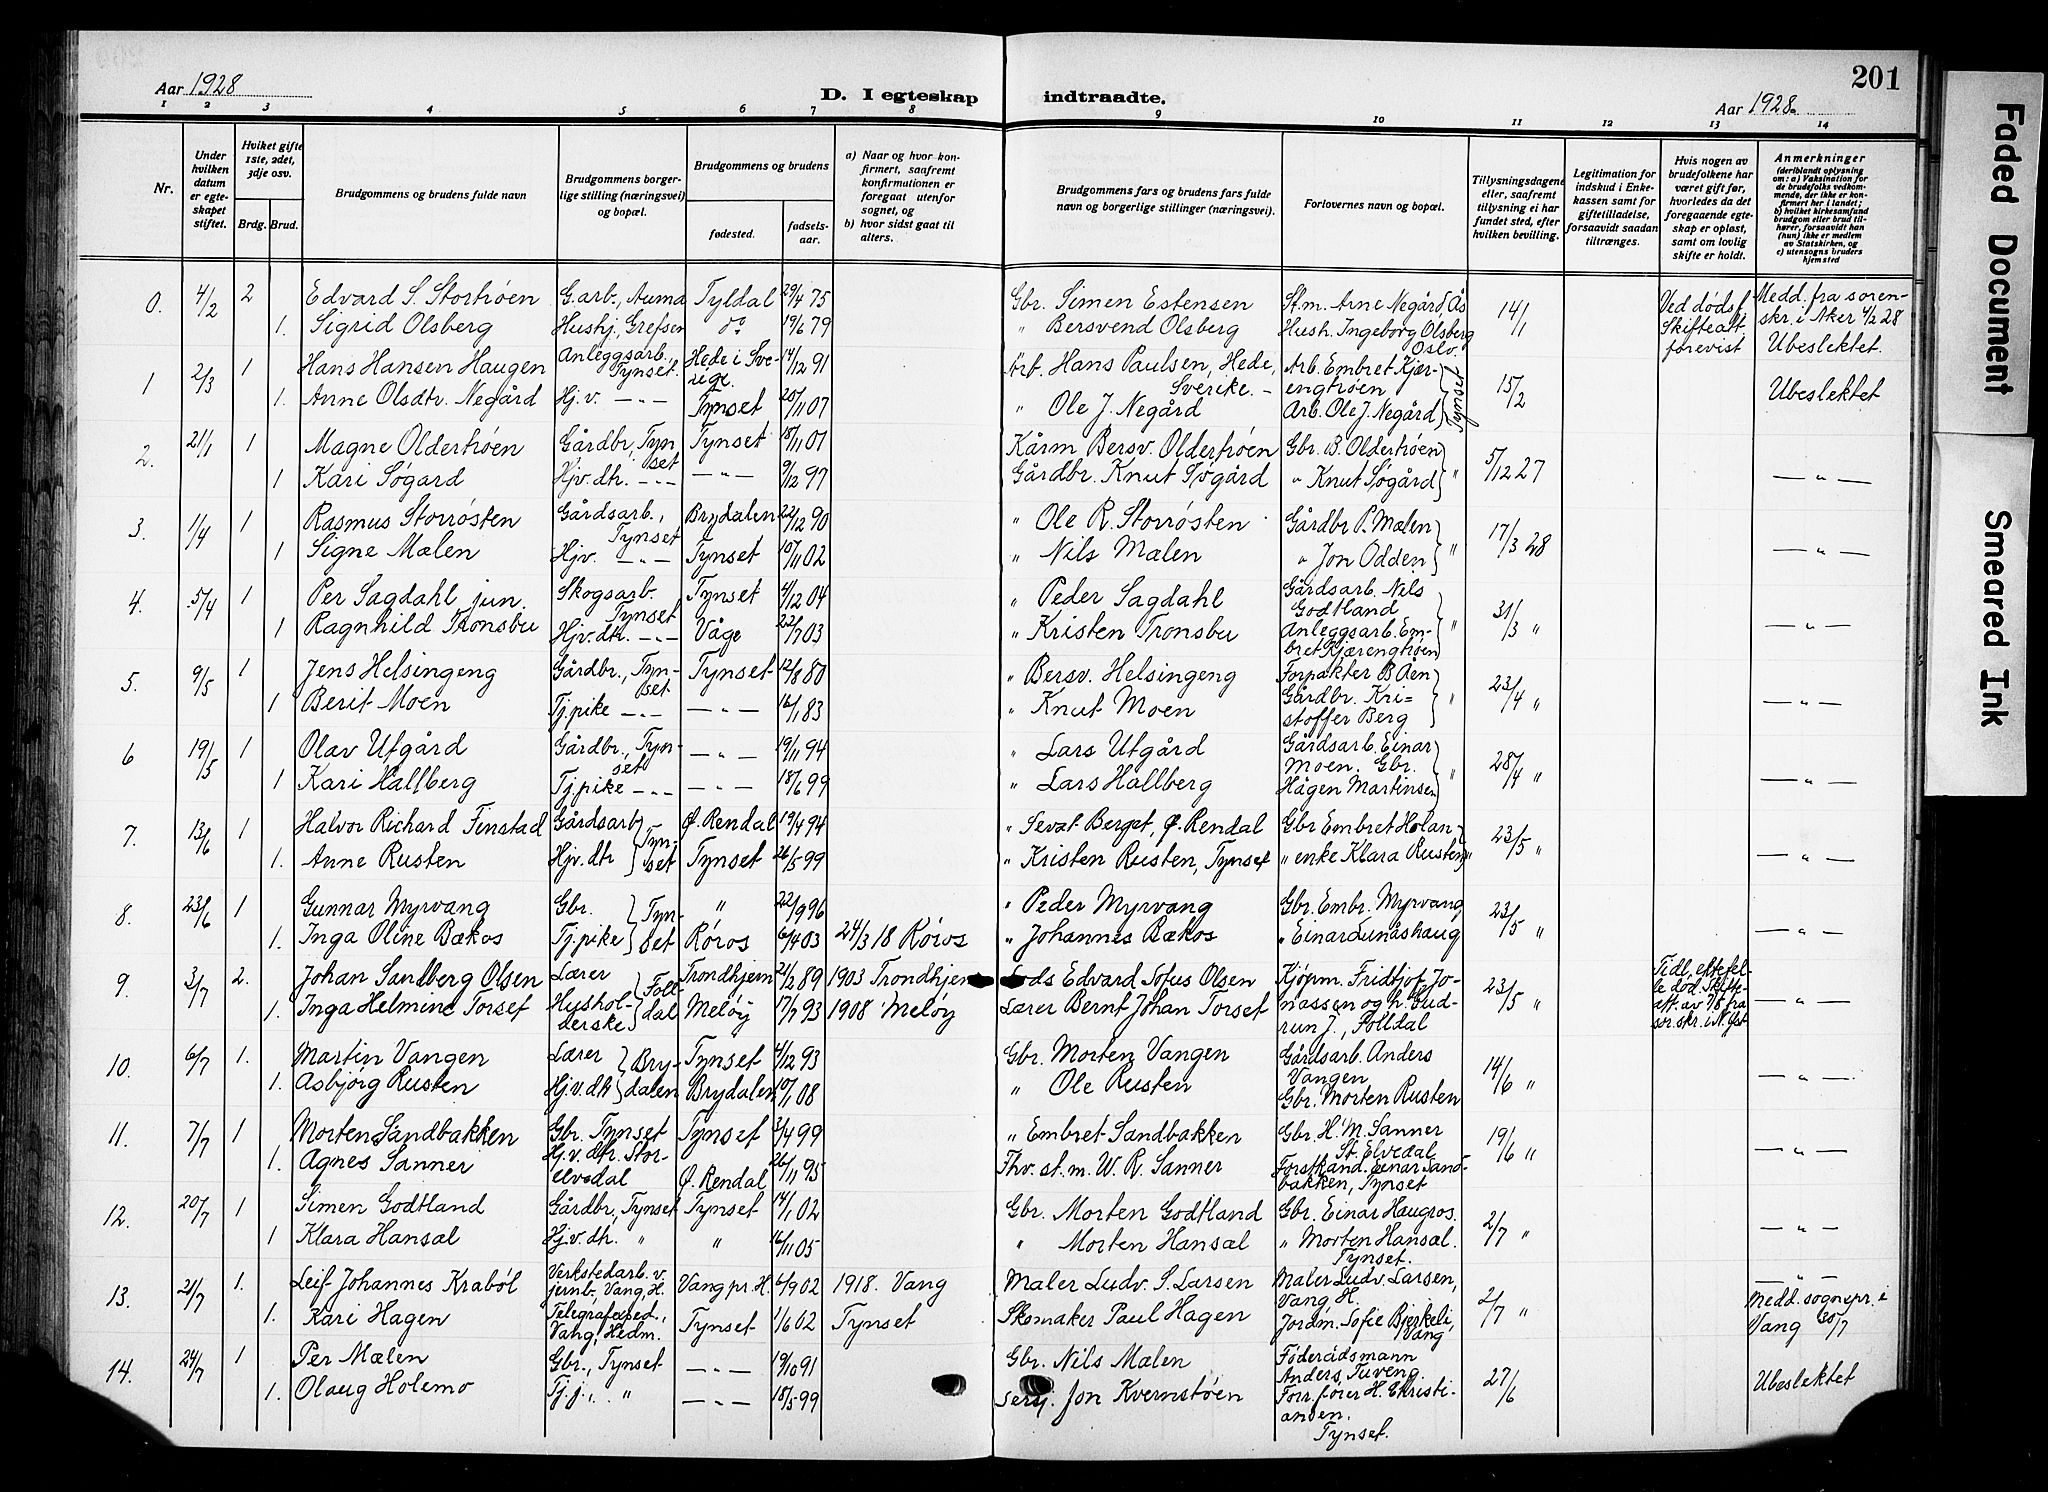 Aar 1928
D. I egteskap indtraadte.
Aar 1928.
201
1 2 3 4 5 6 7 8 9 10 11 12 13 14
Nr.
Under hvilken datum er egteskapet stiftet.
Hviket gifte 1ste, 2det, 3dje osv.
Brdg. Brud.
Brudgommens og brudens fulde navn
Brudgommens borgerlige stilling (næringsvei) og bopæl.
Brudgommens og brudens
fødested.
fødselsaar.
a) Naar og hvor konfirmert, saafremt konfirmationen er foregaat utenfor sognet, og
b) hvor sidst gaat til alters.
Brudgommens fars og brudens fars fulde navn og borgerlige stillinger (næringsvei).
Forlovernes navn og bopæl.
Tillysningsdagene eller, saafremt tillysning ei har fundet sted, efter hvilken bevilling.
Legitimation for indskud i Enkekassen samt for giftetilladelse, forsaavidt saadan tiltrænges.
Hvis nogen av brudefolkene har været gift før, hvorledes da det foregaaende egteskap er opløst, samt om lovlig skifte er holdt.
Anmerkninger (deriblandt oplysning om: a) Vaksination for de brudefolks vedkommende, der ikke er konfirmert her i landet; b) hvilket kirkesamfund brudgom eller brud tilhører, forsaavidt han (hun) ikke er medlem av Statskirken, og c) utensogns bruders hjemsted
0. 4/2 2 Edvard S. Stortrøen G.arb., Auma Tyldal 29/4 75 Gbr. Simen Estensen St.m. Arne Negård, Ås 14/1 Ved døds f. Medd. fra soren-
1. Sigrid Olsberg Hushj., Grefsen do 19/6 79 " Bersvend Olsberg Hush. Ingeborg Olsberg Oslo. Skifteatt. forevist skr. i Aker 4/2 28 Ubeslektet.
1 2/3 1 Hans Hansen Haugen Anleggsarb., Tynset. Hede i Sverige. 14/12 91 Arb. Hans Paulsen, Hede, Sverike. - Arb. Embret Kjærengtrøen 15/2 Ubeslektet
1. Anne Olsdtr. Negård Hj.v. — " — Tynset 20/11 07 " Ole J. Negård Arb. Ole J. Negård } Tynset
2. 21/1 1 Magne Oldertrøen Gårdbr., Tynset Tynset 18/11 01 Kårm Bersv. Oldertrøen Gbr. B. Oldertrøen } " 5/12 27 — " —
1 Kari Søgard Hjv. dtr. — " — — " — 9/12 97 Gårdbr. Knut Søgård " Knut Søgård
3. 1/4 1 Rasmus Storrøsten Gårdsarb., Tynset Brydalen 22/12 90 " Ole R. Storrøsten Gårdbr P. Mælen } " 17/3 28 — " —
1 Signe Mælen Hjv. — " — Tynset 10/11 02 " Nils Mælen " Jon Odden
4. 5/4 1 Per Sagdahl jun. Skogsarb. Tynset Tynset 4/12 04 " Peder Sagdahl Gårdsarb. Nils Godtland } " 31/3 " — " —
1 Ragnhild Tronsbu Hjv. dtr. — " — Våge 22/7 03 " Kristen Tronsbu Anleggsarb. Embret Kjærengtrøen
5. 9/5 1 Jens Helsingeng Gårdbr., Tynset Tynset 12/8 80 " Bersv. Helsingeng Forpakter B Åen } " 23/4 " — " —
1 Berit Moen Tj.pike — " — — " — 16/1 83 " Knut Moen Gårdbr. Kristoffer Berg
6 19/5 1 Olav Utgård Gårdbr., Tynset — " — 19/11 94 " Lars Utgård Gårdsarb. Einar Moen. Gbr. } " 28/4 " — " —
1 Kari Hallberg Tj.pike — " — — " — 18/6 99 " Lars Hallberg Hågen Martinsen
7. 13/6 1 Halvor Richard Finstad Gårdsarb } Tynset Ø. Rendal 19/4 94 " Sevat Berget, Ø. Rendal Gbr Embret Holan 23/5 " — " —
1. Anne Rusten Hjv. dtr Tynset 26/5 99 " Kristen Rusten, Tynset " enke Klara Rusten "
8. 23/6 1 Gunnar Myrvang Gbr. } Tynset " 22/9 96 " Peder Myrvang Gbr. Embr. Myrvang 23/5 " — " —
1. Inga Oline Bækos Tj.pike Røros 6/4 03 24/3 18 Røros " Johannes Bækos " Einar Lunåshaug
9. 3/7 2. Johan Sandberg Olsen Lærer } Folldal Trondhjem 21/2 89 1903 Trondhjem Lods Edvard Sofus Olsen Kjøpm. Fridtjof Jonassen og h. Gudrun J., Folldal 23/5 " Tidl. ektefelle død. Skifteatt. av 7/5 fra sor. skr. i N. Øst — " —
1. Inga Helmine Torset Husholderske Meløy 17/7 93 1908 Meløy Lærer Bernt Johan Torset
10. 6/7 1. Martin Vangen Lærer } Brydalen Tynset 4/12 93 Gbr. Morten Vangen Gårdsarb. Anders Vangen 14/6 " — " —
1. Asbjørg Rusten Hj.v. dtr Brydalen 10/1 08 " Ole Rusten Gbr. Morten Rusten
11. 7/7 1 Morten Sandbakken Gbr. Tynset Tynset 3/4 99 " Embret Sandbakken Gbr. H. M. Sanner St. Elvedal 19/6 " — " —
1. Agnes Sanner Hj.v. dtr. Storelvedal Ø. Rendal 26/11 95 Thv. st. m. W. R. Sanner Forstkand. Einar Sandbakken, Tynset
12. 20/7 1 Simen Godtland Gårdbr., Tynset Tynset 14/1 02 Gbr. Morten Godtland Gbr. Einar Haugros. 2/7 " — " —
1 Klara Hansæl Hj.v. dtr. " " 16/11 05 " Morten Hansæl " Morten Hansæl. Tynset.
13. 21/7 1. Leif Johannes Krabøl Verkstedarb. v. jernb., Vang, H. Vang pr. H. 6/9 02 1918. Vang Maler Ludv. S. Larsen Maler Ludv. Larsen, Vang H. 2/7 " — " — Medd. sognepr. i Vang 30/7
1. Kari Hagen Telegrafexped., Vang, Hedm. Tynset 1/6 02 Tynset Skomaker Paul Hagen Jordm. Sofie Bjerkeli, Vang
14. 24/7 1 Per Mælen Gbr., Tynset — " — 19/10 91 Gbr. Nils Mælen Föderådsmann Anders Tuveng. 27/6 Ubeslektet
1. Olaug Holemo Tj.j., " — " — 18/5 99 Sersj. Jon Kvernstøen Forr. fører H. Christianden. Tynset.
Faded Document
Smeared Ink